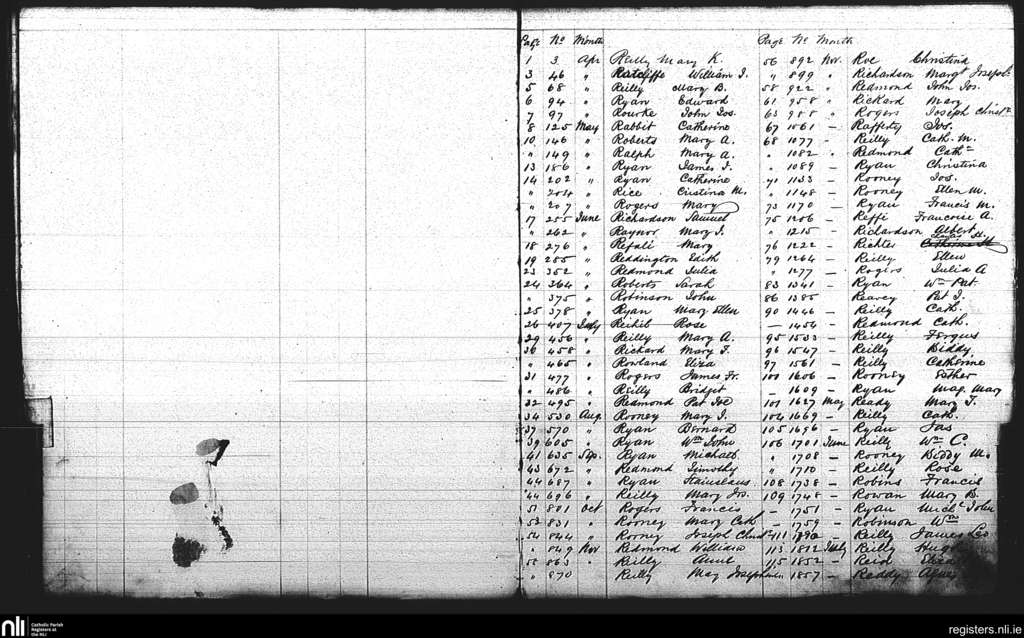 Page No Month
1 3 Apr Reilly Mary K.
3 46 " Ratcliffe William J.
5 68 " Reilly Mary B.
6 94 " Ryan Edward
7 97 " Rourke John Jos.
8 125 May Rabbit Catherine
10 146 " Roberts Mary A.
" 149 " Ralph Mary A.
13 186 " Ryan James J.
14 202 " Ryan Catherine
" 204 " Rice Cristina M.
" 207 " Rogers Mary
17 255 June Richardson Samuel
" 262 " Raynor Mary J.
18 276 " Mary
19 285 " Reddington Edith
23 352 " Redmond Julia
24 364 " Roberts Sarah
" 375 " Robinson John
25 378 " Ryan Mary Ellen
26 407 July Rose
29 456 " Reilly Mary A.
30 458 " Richard Mary F.
" 465 " Rowland Eliza
31 477 " Rogers James Fr.
" 486 " Reilly Bridget
32 495 " Redmond Pat
34 530 Aug Rooney Mary J.
37 570 " Ryan Bernard
39 605 " Ryan Wm John
41 635 Sep. Ryan Michael
43 672 " Redmond Timothy
44 687 " Ryan Stanislaus
44 696 " Reilly Mary Jos.
51 801 Oct Rogers Francis
53 831 " Rooney Mary Cath
54 844 " Rooney Joseph
" 849 Nov Redmond William
55 863 " Reilly Anne
" 870 Reilly May Josephine
Page No Month
56 892 Nov. Roe Christina
" 899 " Richardson Margt Joseph
58 922 " Redmond John Jos.
61 958 " Rickard Mary
63 988 " Rogers Joseph
67 1061 – Rafferty Jos.
68 1077 – Reilly Cath. M.
" 1082 " Redmond Cath
" 1089 – Ryan Christina
71 1133 – Rooney Jos.
" 1148 – Rooney Ellen M.
73 1170 – Ryan Francis M.
75 1206 – Francoise A.
" 1215 – Richardson Albert
76 1222 – Richter
79 1264 – Reilly Ellen
" 1277 – Rogers Julia A
83 1341 – Ryan Wm Pat.
86 1385 Reavey Pat J.
90 1446 – Reilly Cath.
– 1454 – Redmond Cath.
95 1533 – Reilly Fergus
96 1547 – Reilly Biddy
97 1561 – Reilly Catherine
100 1606 – Rooney Esther
– 1609 – Ryan Mag. Mary
101 1627 May Ready Mary T.
104 1669 – Reilly Cath.
105 1696 – Ryan Jas
106 1701 June Reilly Wm C.
" 1708 – Rooney Biddy M.
" 1710 – Reilly Rose
108 1738 – Robins Francis
109 1748 – Rowan Mary B.
– 1751 – Ryan Michl John
– 1759 – Robinson Wm
111 – Reilly James Leo
113 1812 July Reilly Hugh
115 1852 – Reid Eliza
1857 – Reddy Agnes
nli Catholic Parish Registers at the NLI
registers.nli.ie